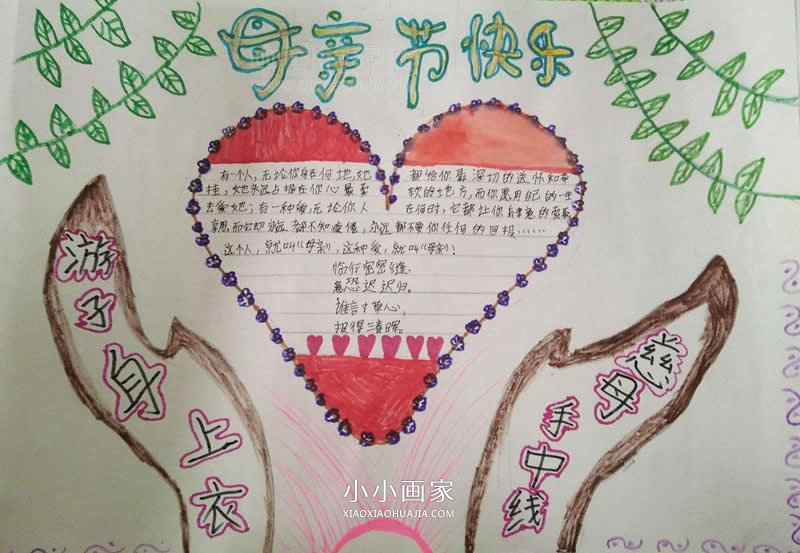 母亲节快乐
有一个人,无论你身在何地,她都给你最深切的关怀和牵
挂,她永远占据在你心最柔软的地方,而你愿用自己的一生
去爱她;有一种爱,无论你人在何时,它都让你
而它却永远都不知疲倦,永远都不要你任何的回报……
这个人,就叫《母亲》,这种爱,就叫《母亲》!
临行密密缝,
意恐迟迟归。
谁言寸草心,
报得三春晖。
慈母
手中线
游子
身上衣
小小画家
XIAOXIAOHUAJIA.COM